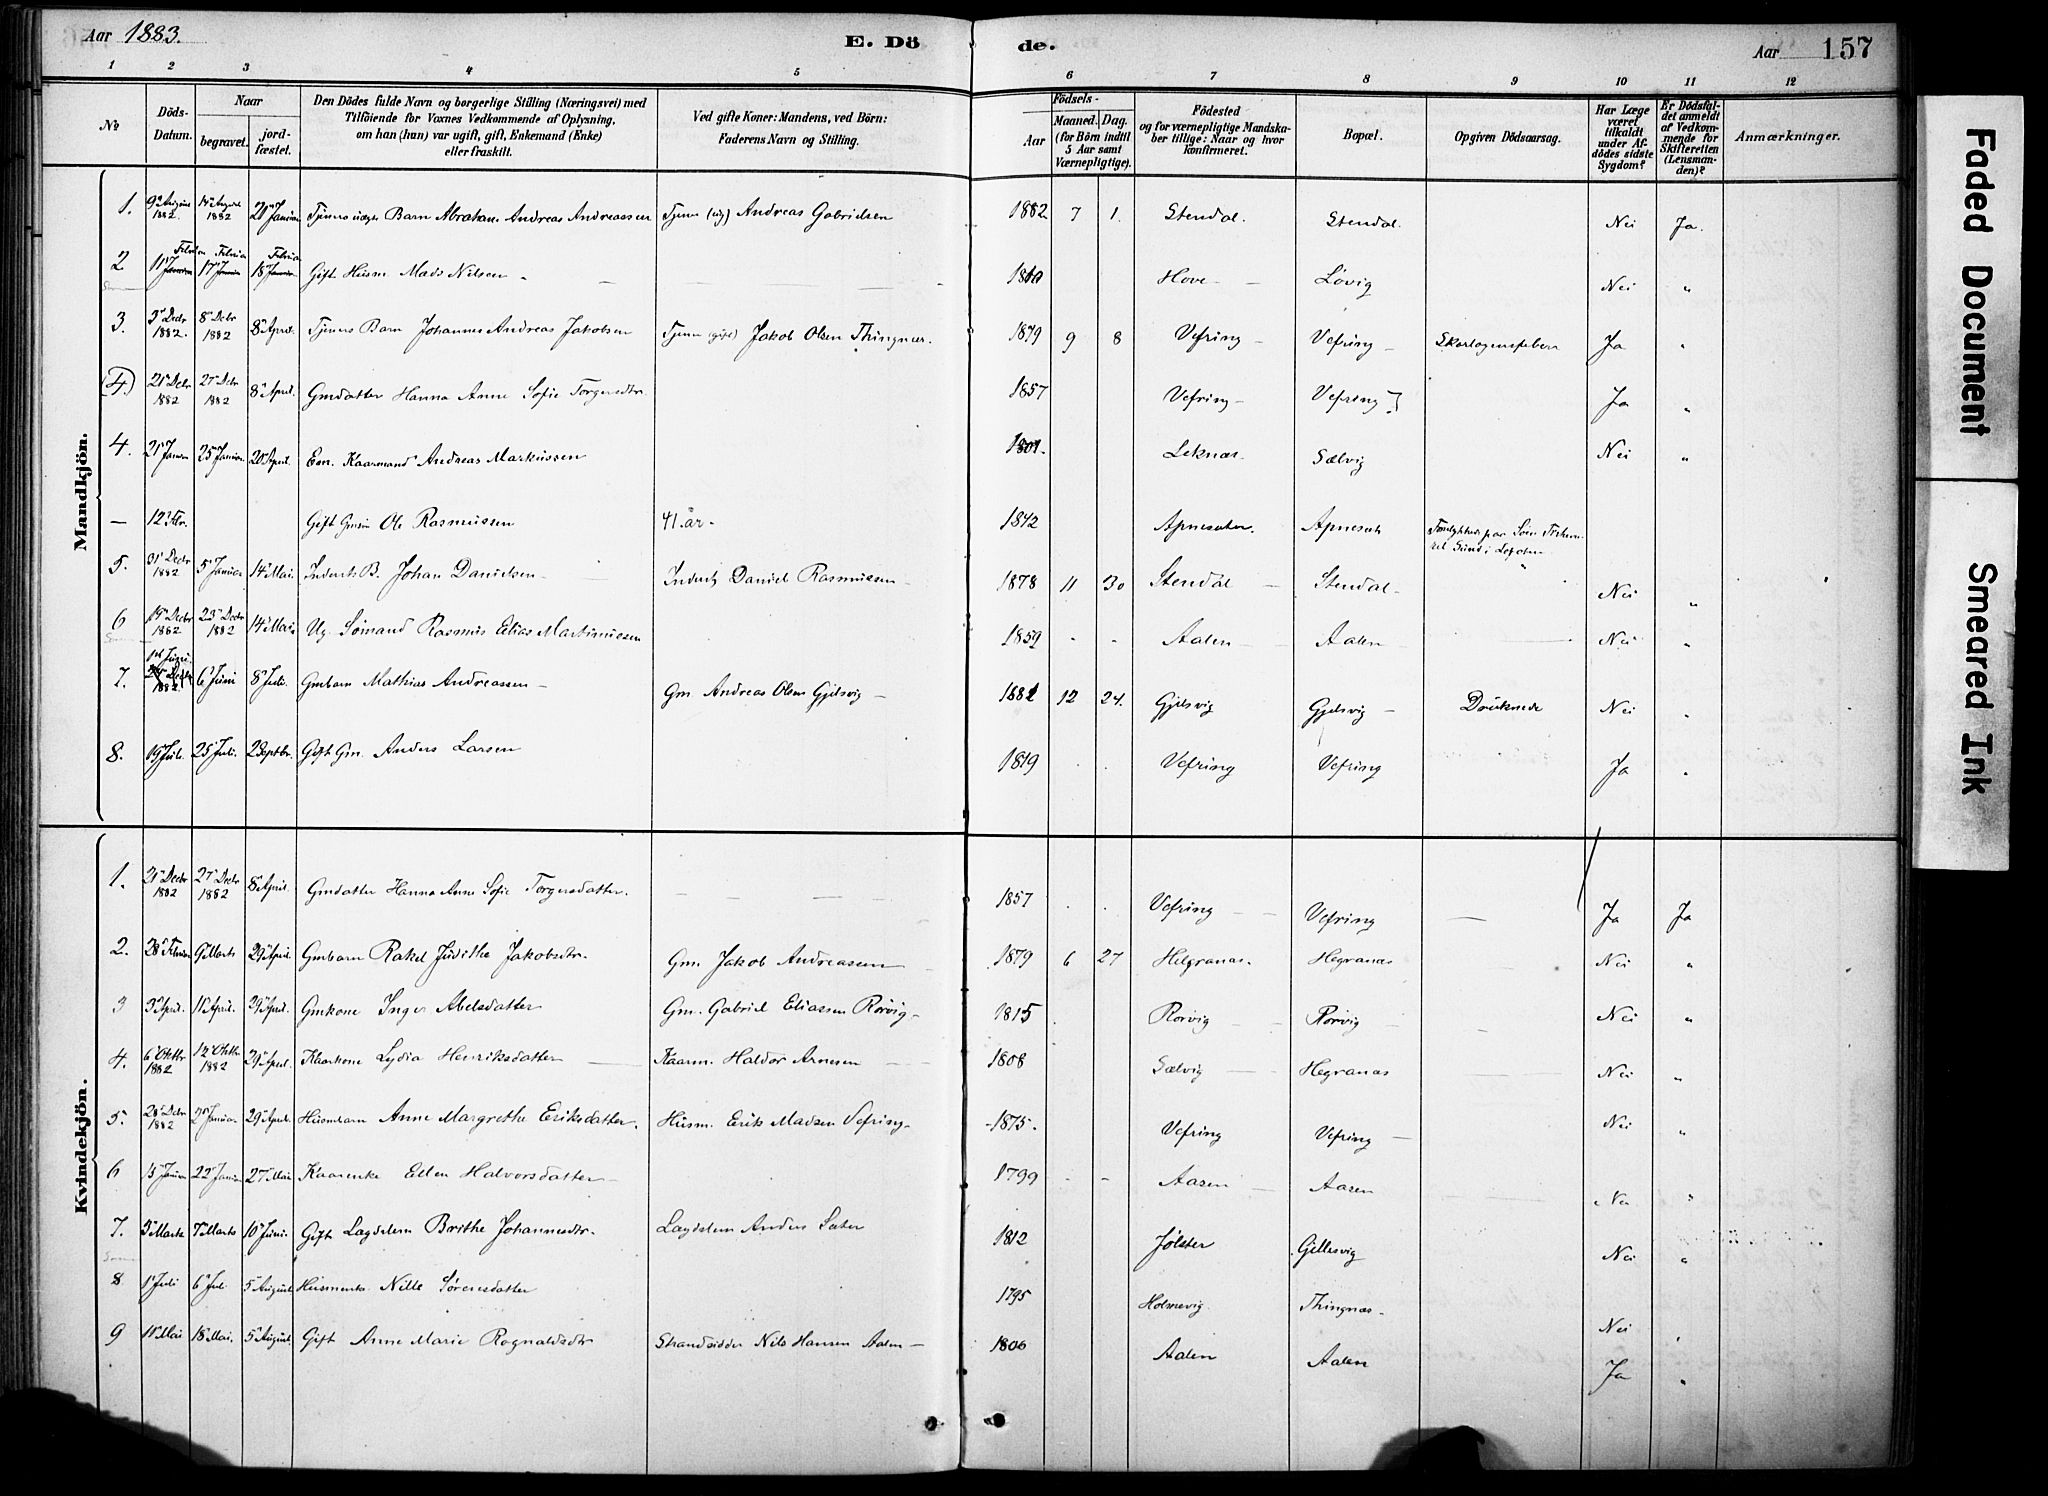 Aar 1883.
E. Dö
de.
Aar
157
1 2 3 4 5 6 7 8 9 10 11 12
No
Döds-Datum.
Naar
begravet.
jord-fæstet.
Den Dödes fulde Navn og borgerlige Stilling (Næringsvei) med
Tilföiende for Voxnes Vedkommende af Oplysning,
om han (hun) var ugift, gift, Enkemand (Enke)
eller fraskilt.
Ved gifte Koner: Mandens, ved Börn:
Faderens Navn og Stilling.
Födsels-
Aar
Maaned.
Dag.
(for Börn indtil
5 Aar samt
Værnepligtige).
Födested
og for værnepligtige Mandska-
ber tillige: Naar og hvor
konfirmeret.
Bopæl.
Opgiven Dödsaarsag.
Har Læge
været
tilkaldt
under Af-
dödes sidste
Sygdom?
Er Dödsfal-
det anmeldt
af Vedkom-
mende for
Skifteretten
(Lensman-
den)?
Anmærkninger.
Mandkjön.
1. 9 August 1882. 14 August 1882 Barn Abraham Andreas Andreassen Andreas Gabrielsen 1882 7 1. Stendal. Stendal. Nei Ja.
2 11 Februar 17 Februar 18 Februar Gift Husm Mads Nilsen Hove Løvig Nei "
3. 3 Decbr 1882. 8 Debr 1882 8 April. Tjeners Barn Johannes Andreas Jakobsen Tjener (gift) Jakob Olsen Thingnæs. 1879 9 8 Vefring Vefring Skarlagensfeber Ja "
(4.) 21 Debr 1882 27 Debr 1882 8 April. Gmdatter Hanna Anne Sofie Torgersdtr. 1857 Vefring Vefring Ja "
4. 21 Januar 25 Januar 20 April. Em. Kaarmand Andreas Markussen 1801. Leknæs. Sælvig Nei "
— 12 Fbr. Gift Gm Ole Rasmussen 41. år. 1842 Apnesæter. Apneset
5. 31 Decbr 1882 5 Januar 14 Mai. Inderts B. Johan Danielsen Inderts Daniel Rasmussen 1878 11 30 Stendal Stendal Nei "
6 19 Decbr 1882 23 Decbr 1882 14 Mai Ug. Sømand Rasmus Elias Martinussen 1859 Aalen Aalen Nei "
7. 1 Juni 1882. 6 Juni 8 Juli. Gmbarn Mathias Andreassen Gm Andreas Olsen Gjelsvig 1881 12 24. Gjelsvig Gjelsvig Druknede Nei "
8. 19 Juli. 25 Juli. 2 Septbr. Gift Gm. Anders Larsen 1819 Vefring Vefring Ja "
Kvindekjön.
1. 21 Decbr 1882 27 Decbr 1882 8 April. Gmdatter Hanna Anne Sofie Torgersdatter. 1857 Vefring Vefring Ja Ja
2. 28 Februar 9 Marts 29 April. Gmbarn Rakel Judithe Jakobsdtr. Gm. Jakob Andreassen 1879 6 27 Helgranæs. Hegranæs Nei "
3 3 April. 11 April. 29 April. Gmkone Inger Abelsdatter Gm. Gabriel Eliassen Rørvig 1815 Rørvig Rørvig Nei "
4. 6 Oktbr 1882 12 Oktbr 1882 29 April. Kaarkone Lydia Henriksdatter Kaarm. Haldor Arnesen 1808 Sælvig Hegranæs Nei "
5. 28 Debr 1882 2 Januar 29 April. Husmbarn Anne Margrethe Eriksdatter. Husm. Erik Madsen Vefring 1875. Vefring Vefring Nei "
6 15 Januar 22 Januar 27 Mai Kaarenke Ellen Halvorsdatter 1799 Aasen Aasen Nei "
7. 3 Marts 7 Marts 10 Juni. Gift Lægdslem Brithe Johannesdtr. Lægdslem Anders Sæter 1812 Jølster Gjellesvig Nei "
8 1 Juli 6 Juli 5 August Husmenke Nille Sørensdatter 1795 Holmevig Thingnæs. Nei "
9 11 Mai 18 Mai. 5 August. Gift Anne Marie Rognaldsdtr Strandsidder Nils Hansen Aalen 1806 Aalen Aalen Ja "
Faded Document
Smeared Ink